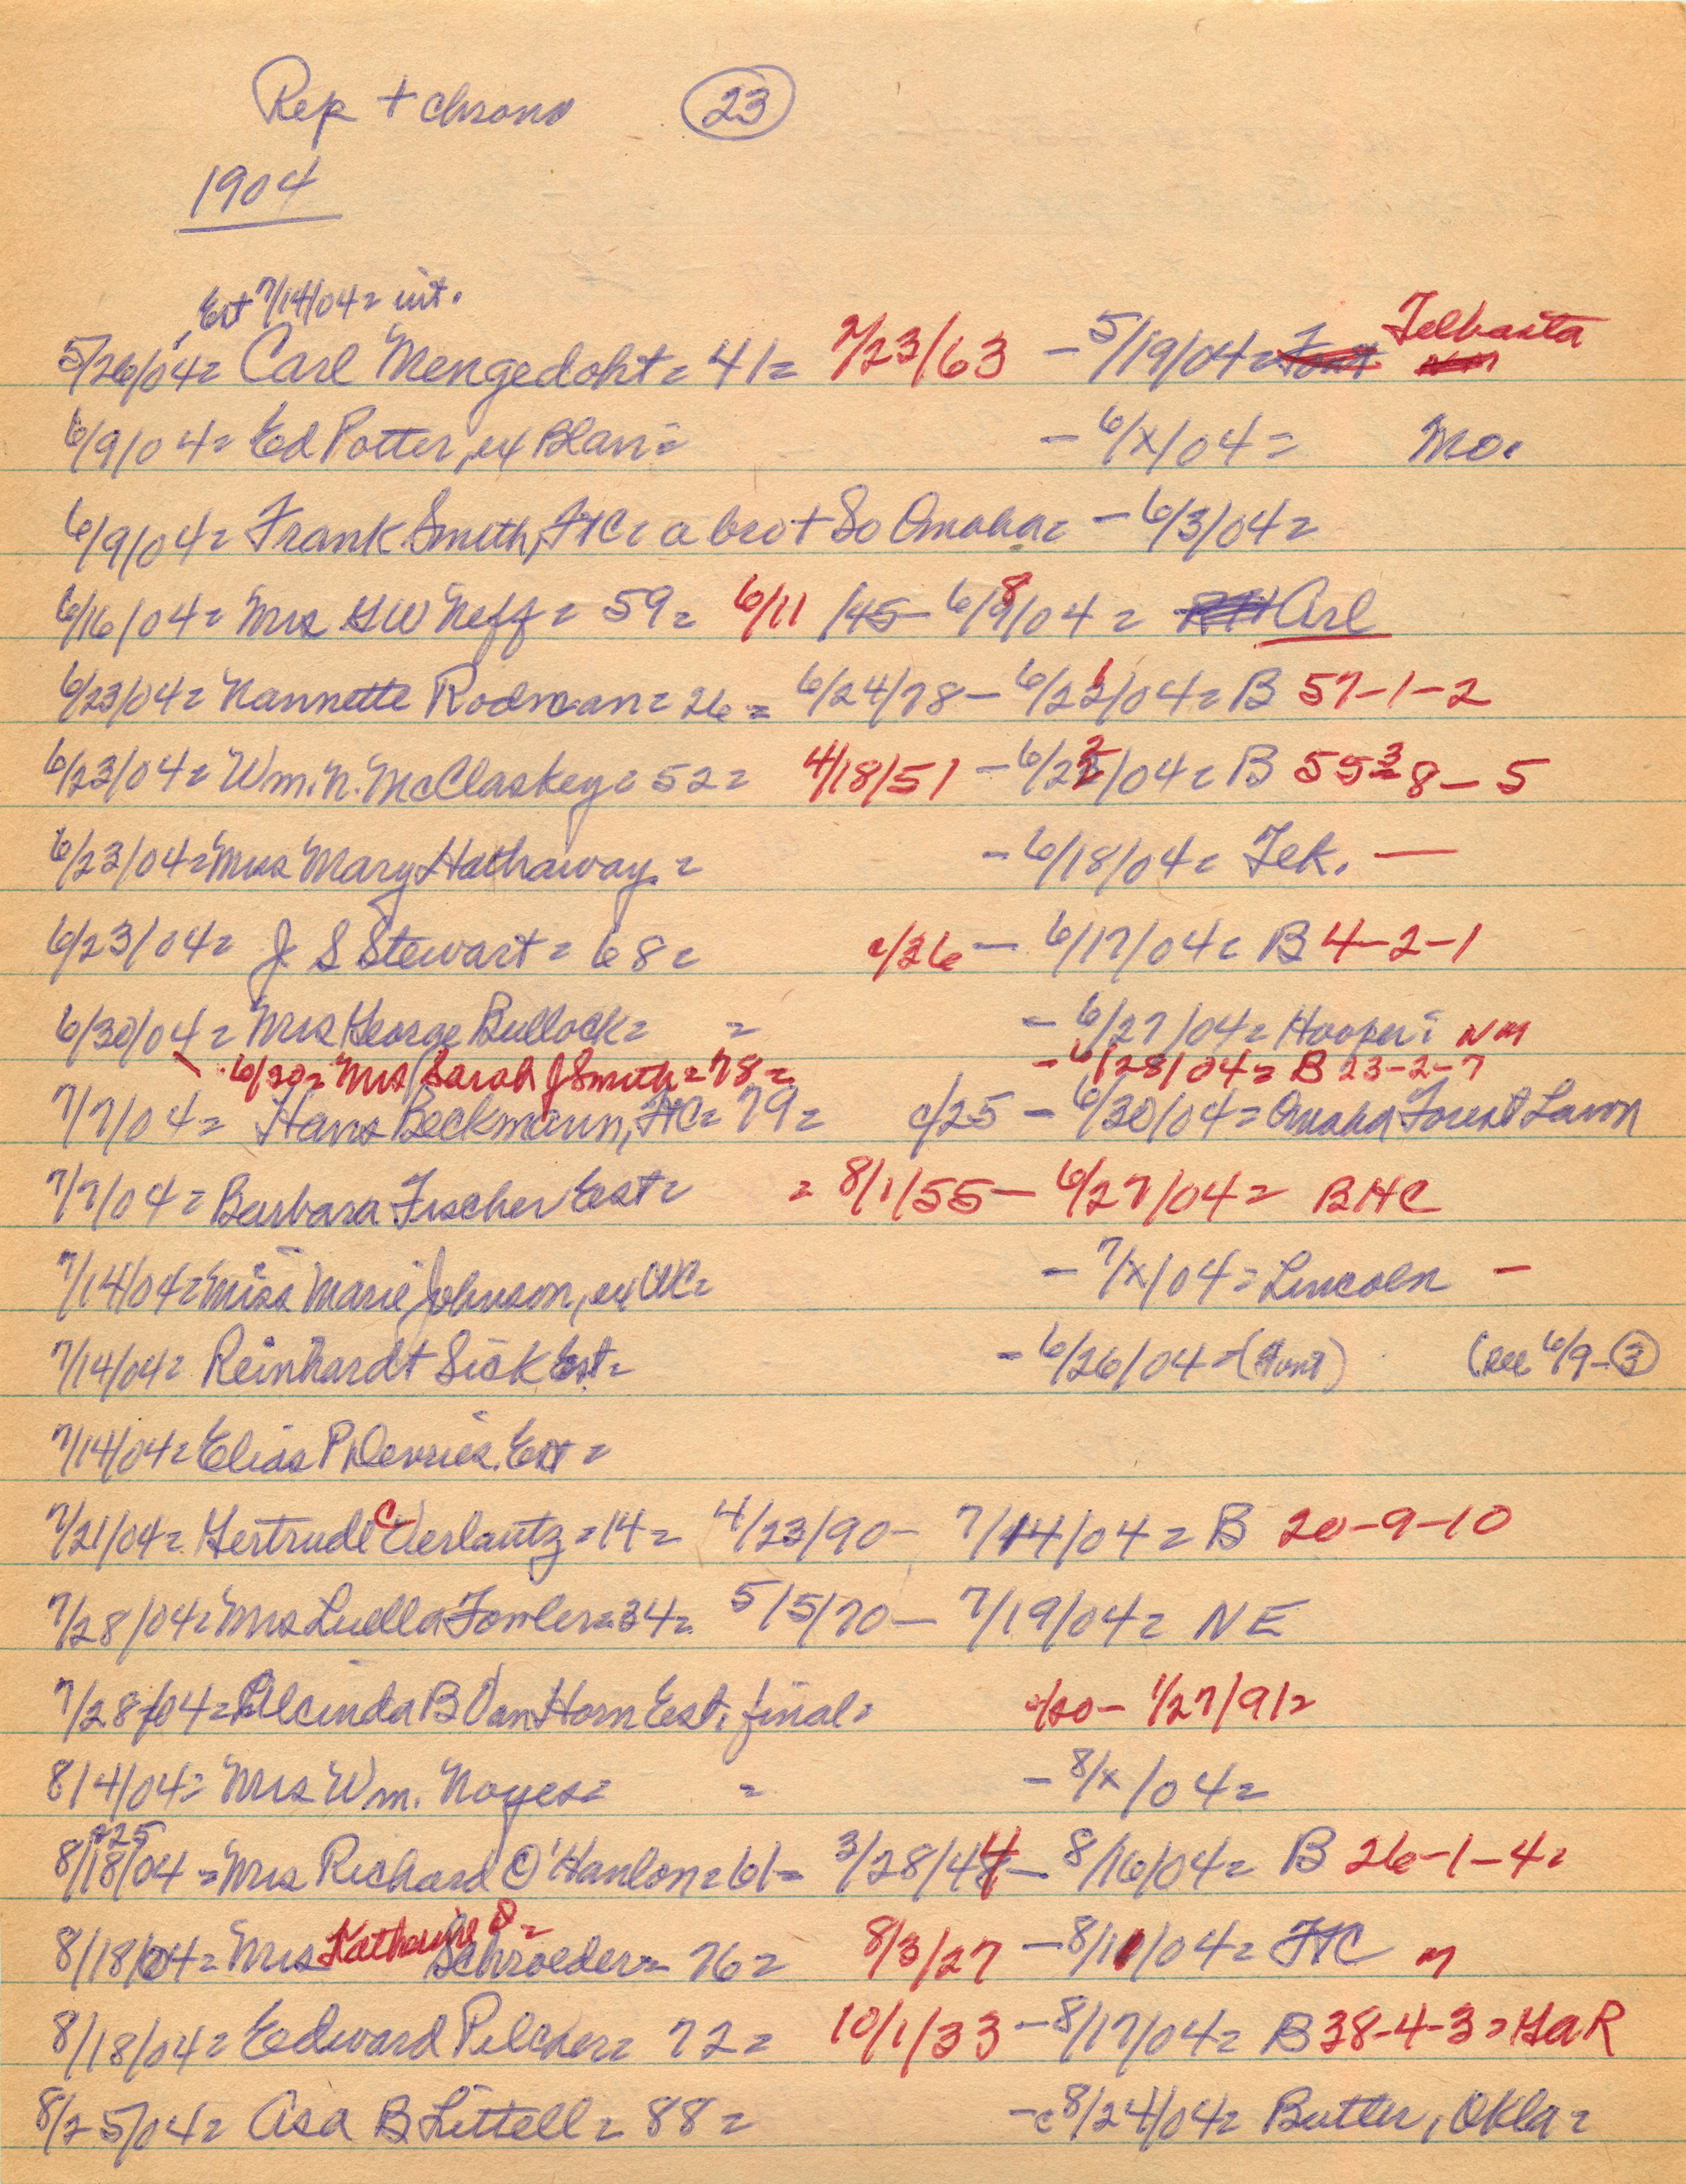 Rep + Chrono 23
1904
Est 7/14/04= init.
5/26/04= Carl Mengedoht= 41= 7/23/63 - 5/19/04= Font Telbasta NM
6/9/04= Ed Potter, ex Blair= - 6/x/04= Mo.
6/9/04= Frank Smith, FtC= a bro + So Omaha= - 6/3/04=
6/16/04= Mrs G W Neff= 59= 6/11/45- 6/8/04= Arl
6/23/04= Nannette Rodman= 26= 6/24/78- 6/21/04= B 57-1-2
6/23/04= Wm. N. McClaskey= 52= 4/18/51 - 6/22/04= B 553-8-5
6/23/04= Mrs Mary Hathaway.= - 6/18/04= Tek. —
6/23/04= J S Stewart= 68= c/36 - 6/17/04= B 4-2-1
6/30/04= Mrs George Bullock= = - 6/27/04= Hooper= NM
6/30= Mrs Sarah J Smith=78= - 6/28/04= B 23-2-7
7/7/04= Hans Beckmann, FtC= 79= c/25 - 6/30/04= Omaha Forest Lawn
7/7/04= Barbara Fischer Est= = 8/1/55- 6/27/04= BHC
7/14/04= Miss Marie Johnson, ex WC= - 7/x/04= Lincoln —
7/14/04= Reinhardt Sick Est= - 6/26/04=(Font) (see 6/9-3
7/14/04= Elias P Devries. Est=
7/21/04= Gertrude C Verlautz=14= 4/23/90- 7/14/04= B 20-9-10
7/28/04= Mrs Luella Fowler=34= 5/5/70- 7/19/04= NE
7/28/04= Alcinda B Van Horn Est. final= c/20- 1/27/91=
8/4/04= Mrs Wm. Noyes= = - 8/x/04=
+25
8/18/04= Mrs Richard O'Hanlon=61= 3/28/44- 8/16/04= B 26-1-4=
8/18/04= Mrs Katherine D= Schroeder= 76= 8/3/27 - 8/11/04= FtC M
8/18/04= Edward Pilcher= 72= 10/1/33 - 8/17/04= B 38-4-3=GaR
8/25/04= Asa B Littell= 88= -c8/24/04= Butler, Okla=